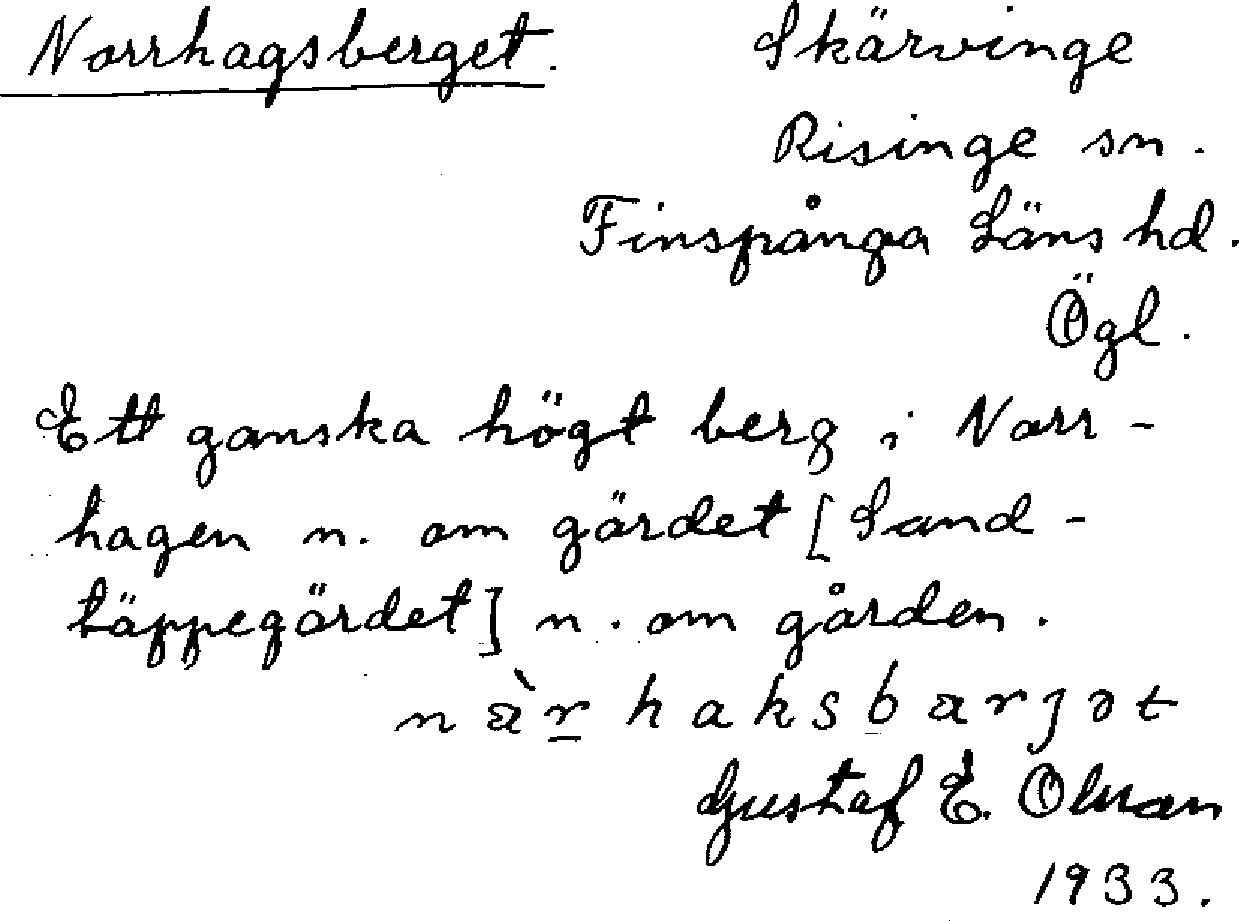 Norrhagsberget. Skärvinge
Risinge sn.
Finspånga Läns hd.
Ögl.
Ett ganska högt berg i Norr-
hagen n. om gärdet [Sand-
täppegärdet] n. om gården.
Gustaf E.
1933.